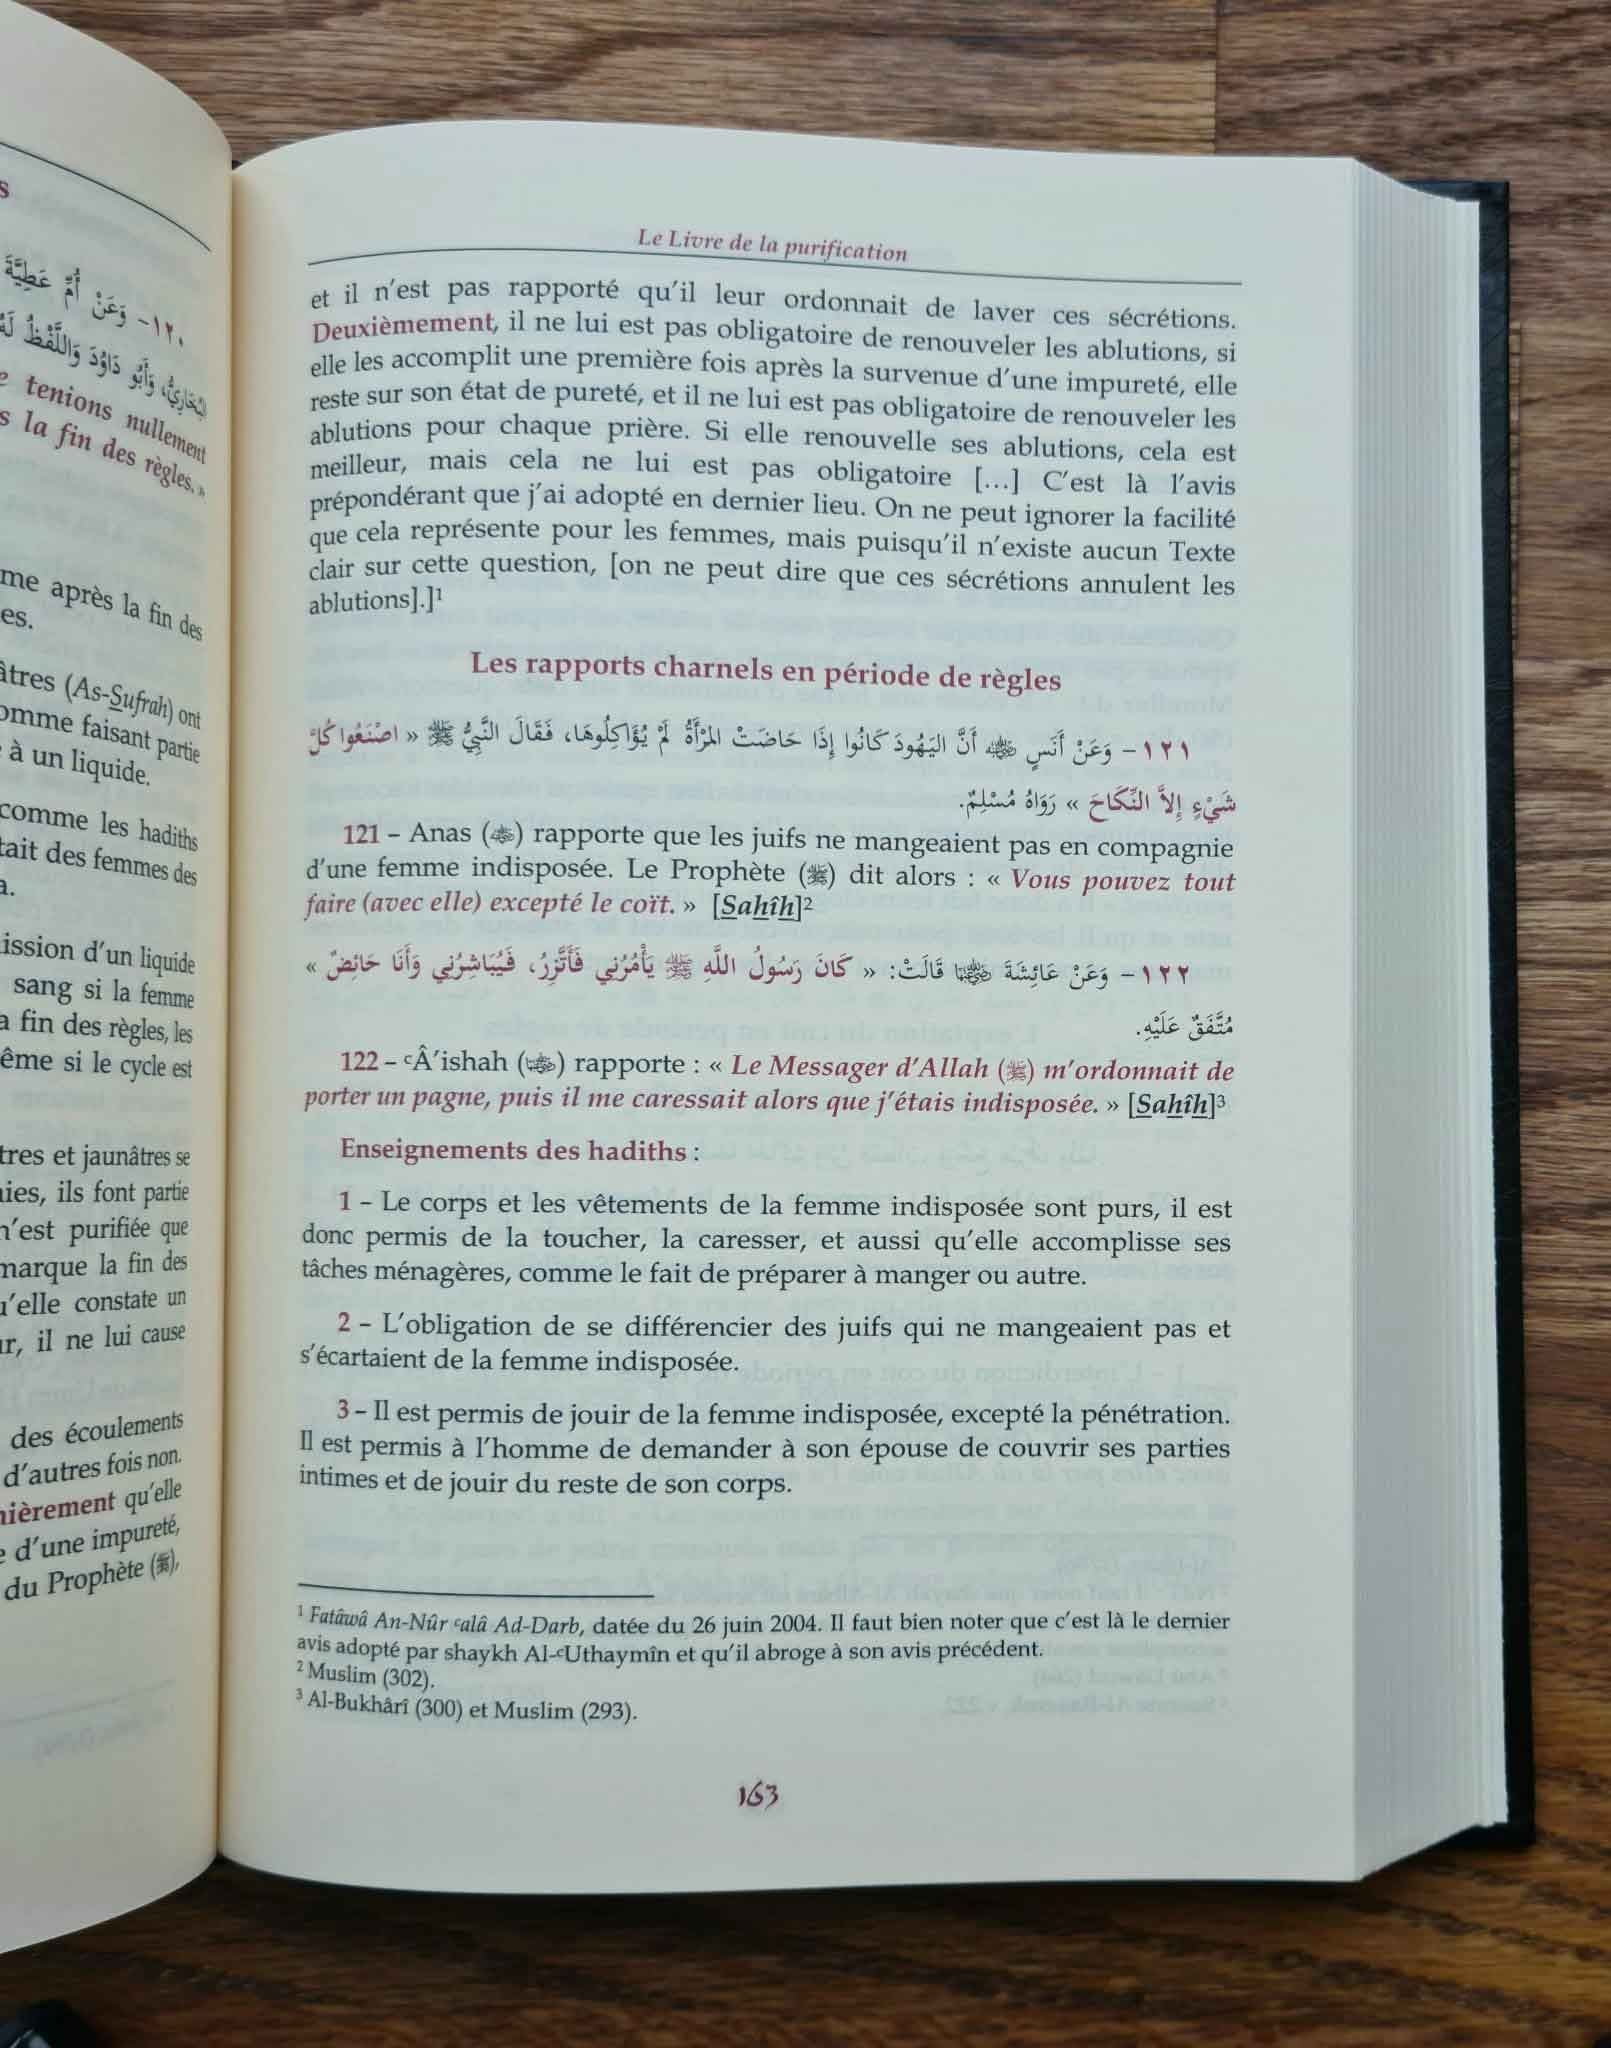 s
١٢٠- وَعَنْ أُمِّ عَطِيَّةَ
البُخَارِيُّ، وَأَبُو دَاوُدَ وَاللَّفْظُ لَهُ
e tenions nullement
s la fin des règles. »
me après la fin des
es.
âtres (As-Sufrah) ont
omme faisant partie
à un liquide.
comme les hadiths
tait des femmes des
a.
ission d'un liquide
sang si la femme
a fin des règles, les
ême si le cycle est
tres et jaunâtres se
nies, ils font partie
n'est purifiée que
marque la fin des
u'elle constate un
ur, il ne lui cause
des écoulements
d'autres fois non.
nièrement qu'elle
e d'une impureté,
du Prophète (ﷺ),
Le Livre de la purification
et il n'est pas rapporté qu'il leur ordonnait de laver ces sécrétions.
Deuxièmement, il ne lui est pas obligatoire de renouveler les ablutions, si
elle les accomplit une première fois après la survenue d'une impureté, elle
reste sur son état de pureté, et il ne lui est pas obligatoire de renouveler les
ablutions pour chaque prière. Si elle renouvelle ses ablutions, cela est
meilleur, mais cela ne lui est pas obligatoire […] C'est là l'avis
prépondérant que j'ai adopté en dernier lieu. On ne peut ignorer la facilité
que cela représente pour les femmes, mais puisqu'il n'existe aucun Texte
clair sur cette question, [on ne peut dire que ces sécrétions annulent les
ablutions].]¹
Les rapports charnels en période de règles
١٢١- وَعَنْ أَنَسٍ رضي الله عنه أَنَّ اليَهُودَ كَانُوا إِذَا حَاضَتْ المَرْأَةُ لَمْ يُؤَاكِلُوهَا، فَقَالَ النَّبِيُّ ﷺ « اصْنَعُوا كُلَّ
شَيْءٍ إِلاَّ النِّكَاحَ » رَوَاهُ مُسْلِمٌ.
121 – Anas (رضي الله عنه) rapporte que les juifs ne mangeaient pas en compagnie
d'une femme indisposée. Le Prophète (ﷺ) dit alors : « Vous pouvez tout
faire (avec elle) excepté le coït. » [Sahîh]²
١٢٢- وَعَنْ عَائِشَةَ رضي الله عنها قَالَتْ: « كَانَ رَسُولُ اللَّهِ ﷺ يَأْمُرُنِي فَأَتَّزِرُ، فَيُبَاشِرُنِي وَأَنَا حَائِضٌ »
مُتَّفَقٌ عَلَيْهِ.
122 – ᶜÂ'ishah (رضي الله عنها) rapporte : « Le Messager d'Allah (ﷺ) m'ordonnait de
porter un pagne, puis il me caressait alors que j'étais indisposée. » [Sahîh]³
Enseignements des hadiths :
1 – Le corps et les vêtements de la femme indisposée sont purs, il est
donc permis de la toucher, la caresser, et aussi qu'elle accomplisse ses
tâches ménagères, comme le fait de préparer à manger ou autre.
2 – L'obligation de se différencier des juifs qui ne mangeaient pas et
s'écartaient de la femme indisposée.
3 – Il est permis de jouir de la femme indisposée, excepté la pénétration.
Il est permis à l'homme de demander à son épouse de couvrir ses parties
intimes et de jouir du reste de son corps.
¹ Fatâwâ An-Nûr ᶜalâ Ad-Darb, datée du 26 juin 2004. Il faut bien noter que c'est là le dernier
avis adopté par shaykh Al-ᶜUthaymîn et qu'il abroge à son avis précédent.
² Muslim (302).
³ Al-Bukhârî (300) et Muslim (293).
163